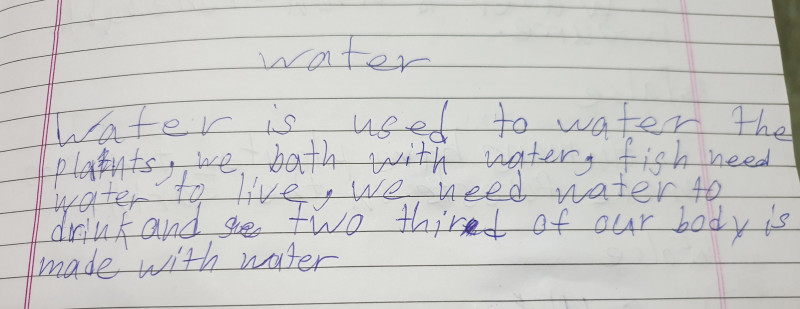 water
Water is used to water the
plants, we bath with water, fish need
water to live, we need water to
drink and two third of our body is
made with water